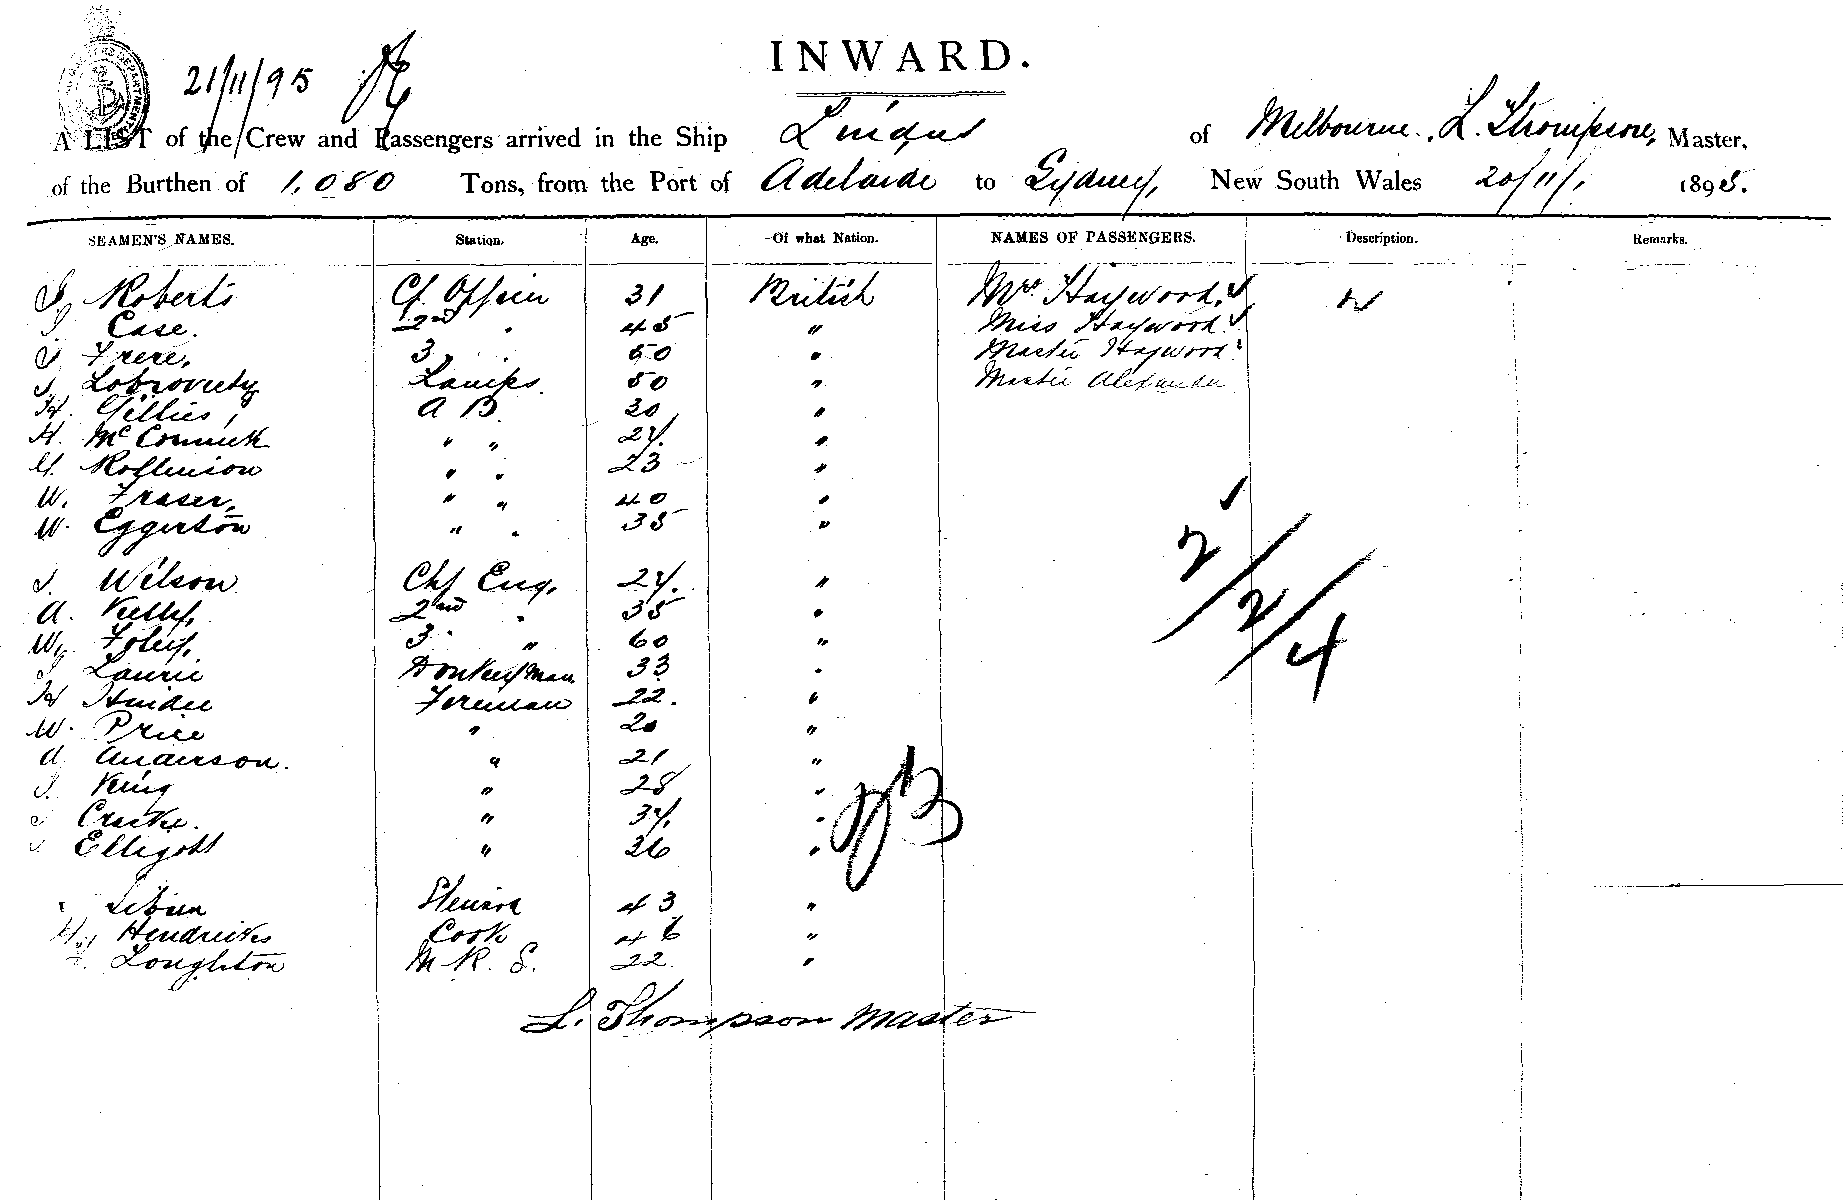 21/11/95
INWARD.
A LIST of the Crew and Passengers arrived in the Ship Lindus of Melbourne. L. Thompson, Master,
of the Burthen of 1,080 Tons, from the Port of Adelaide to Sydney, New South Wales 20/11/ 1895.
SEAMEN'S NAMES. Station. Age. Of what Nation. NAMES OF PASSENGERS. Description. Remarks.
Roberts Cf. Officer 31 British Mrs Haywood
Case. 2nd " 45 " Miss Haywood
Frere, 3 " 50 " Master Haywood
Lamps 50 " Master Alexander
H. Gillies, A B. 30 "
H. McCormick " " 24. "
Robinson " " 23 "
W. Fraser, " " 40 "
W. Eggerton " " 35 "
Wilson Chf Eng. 24. "
A. Kelly, 2nd " 35 "
Foley, 3 " 60 "
Laurie Donkeyman 33 "
H Fireman 22. "
W. Price " 20 "
A Anderson. " 21 "
King " 28 "
" 34. "
Elligott " 26 "
2/2/4
Steward 43 "
Hendricks Cook 46 "
Loughton M. R. S. 22 "
L. Thompson Master